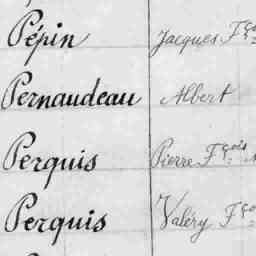 Pépin Jacques Fço
Pernaudeau Albert
Perquis Pierre Fçois
Perquis Valéry Fço